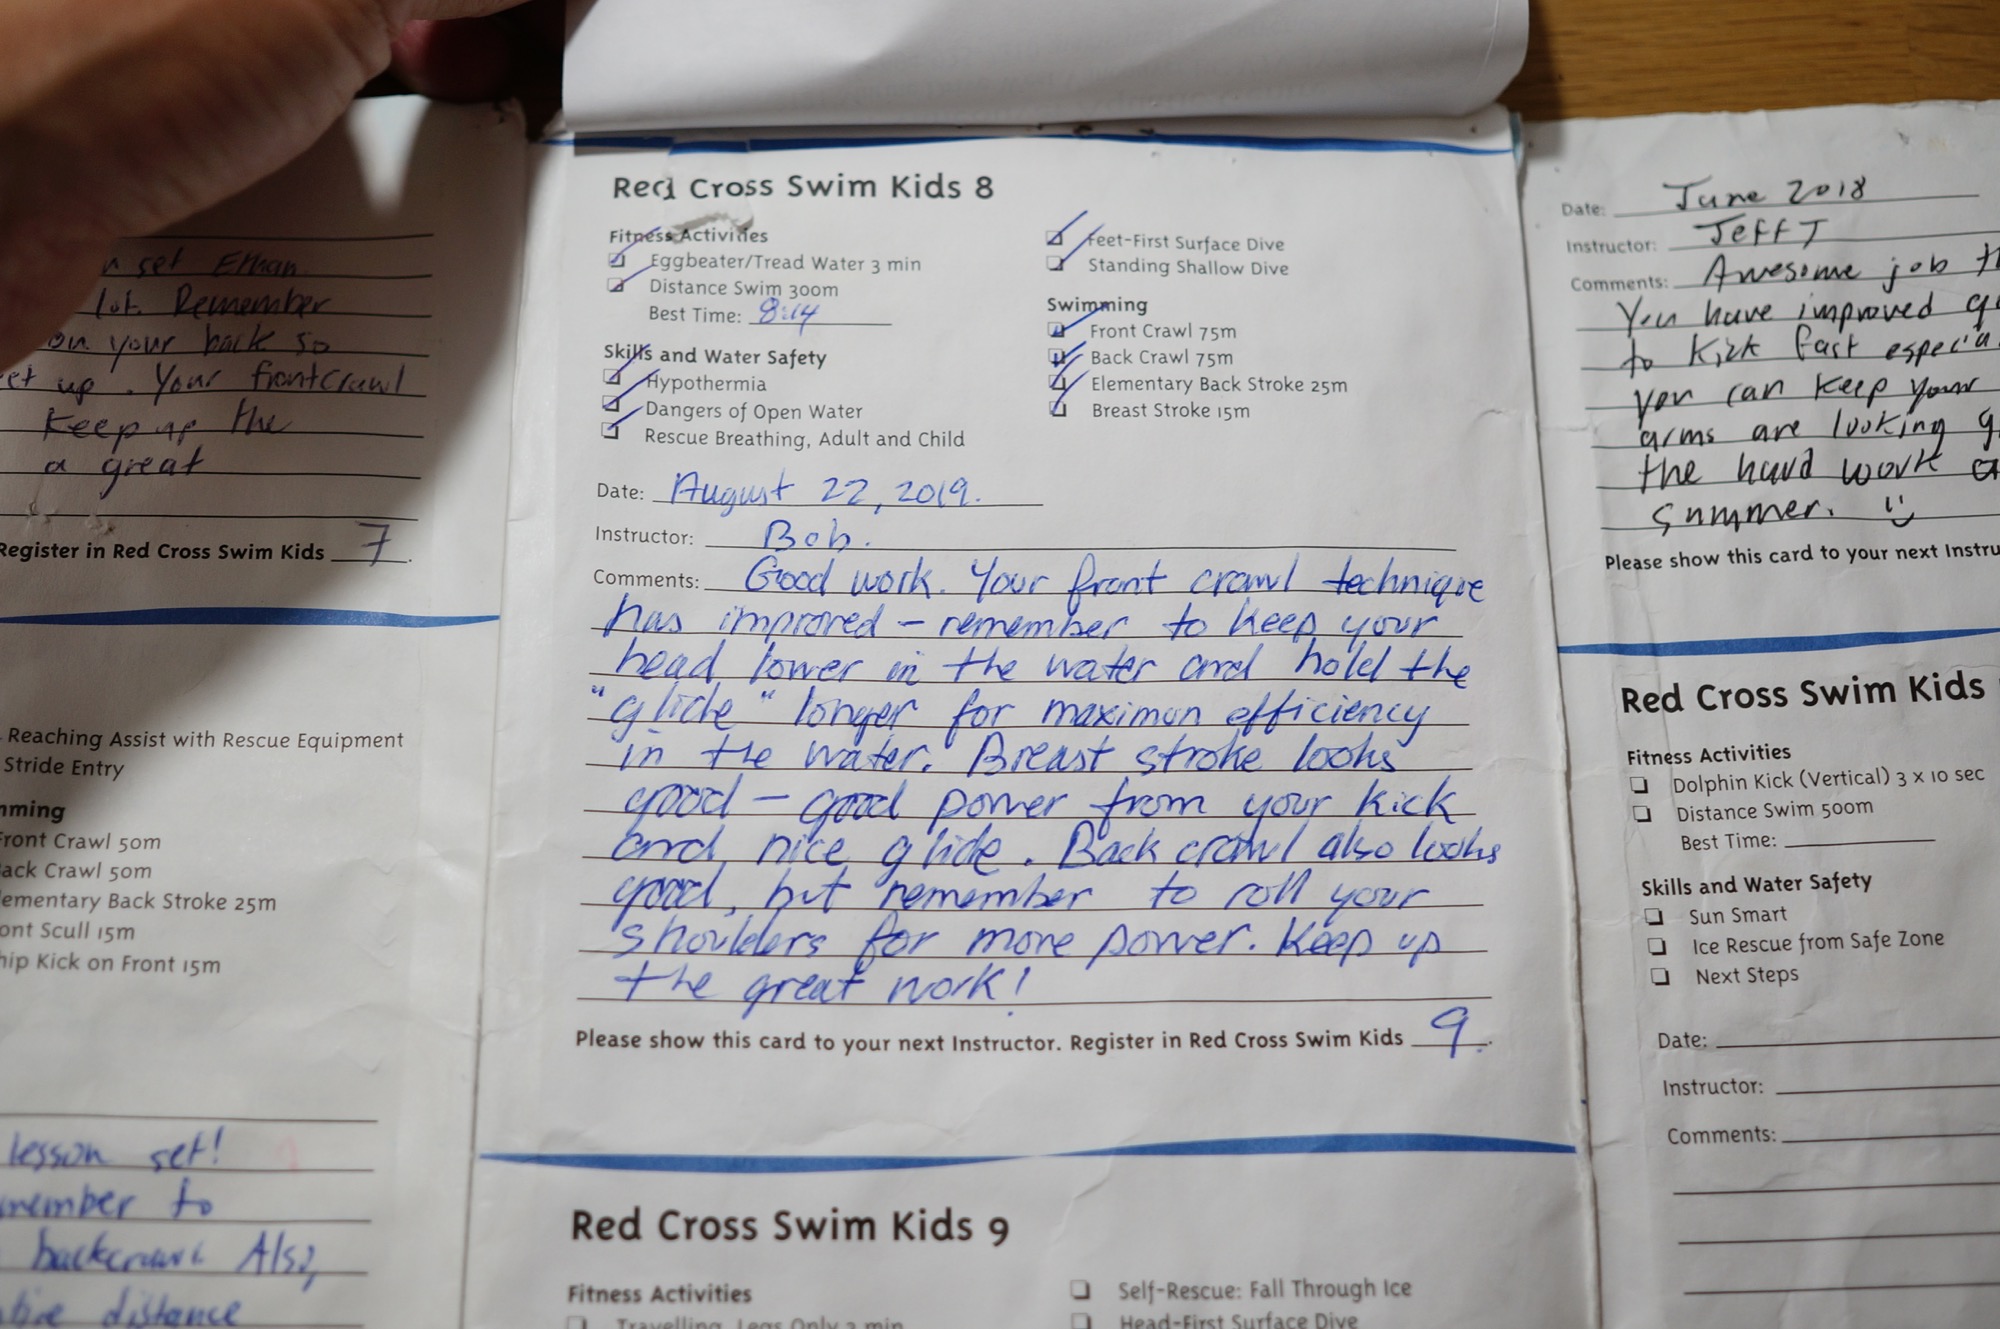 set Ethan
lot. Remember
on your back so
up. Your frontcrawl
Keep up the
a great
Register in Red Cross Swim Kids 7.
Reaching Assist with Rescue Equipment
Stride Entry
Front Crawl 50m
Back Crawl 50m
Elementary Back Stroke 25m
Front Scull 15m
Whip Kick on Front 15m
lesson set!
remember to
backcrawl Also,
distance
Red Cross Swim Kids 8
Fitness Activities
Eggbeater/Tread Water 3 min
Distance Swim 300m
Best Time: 8:14
Skills and Water Safety
Hypothermia
Dangers of Open Water
Rescue Breathing, Adult and Child
Feet-First Surface Dive
Standing Shallow Dive
Swimming
Front Crawl 75m
Back Crawl 75m
Elementary Back Stroke 25m
Breast Stroke 15m
Date: August 22, 2019.
Instructor: Bob.
Comments: Good work. Your front crawl technique
has improved - remember to keep your
head lower in the water and hold the
"glide" longer for maximun efficiency
in the water. Breast stroke looks
good - good power from your kick
and nice glide. Back crawl also looks
good, but remember to roll your
shoulders for more power. Keep up
the great work!
Please show this card to your next Instructor. Register in Red Cross Swim Kids 9.
Red Cross Swim Kids 9
Fitness Activities
Travelling, Legs Only 2 min
Self-Rescue: Fall Through Ice
Head-First Surface Dive
Date: June 2018
Instructor: Jeff T
Comments: Awesome job
You have improved
to kick fast
you can keep your
arms are looking
the hard work
summer.
Please show this card to your next
Red Cross Swim Kids
Fitness Activities
Dolphin Kick (Vertical) 3 x 10 sec
Distance Swim 500m
Best Time:
Skills and Water Safety
Sun Smart
Ice Rescue from Safe Zone
Next Steps
Date:
Instructor:
Comments: